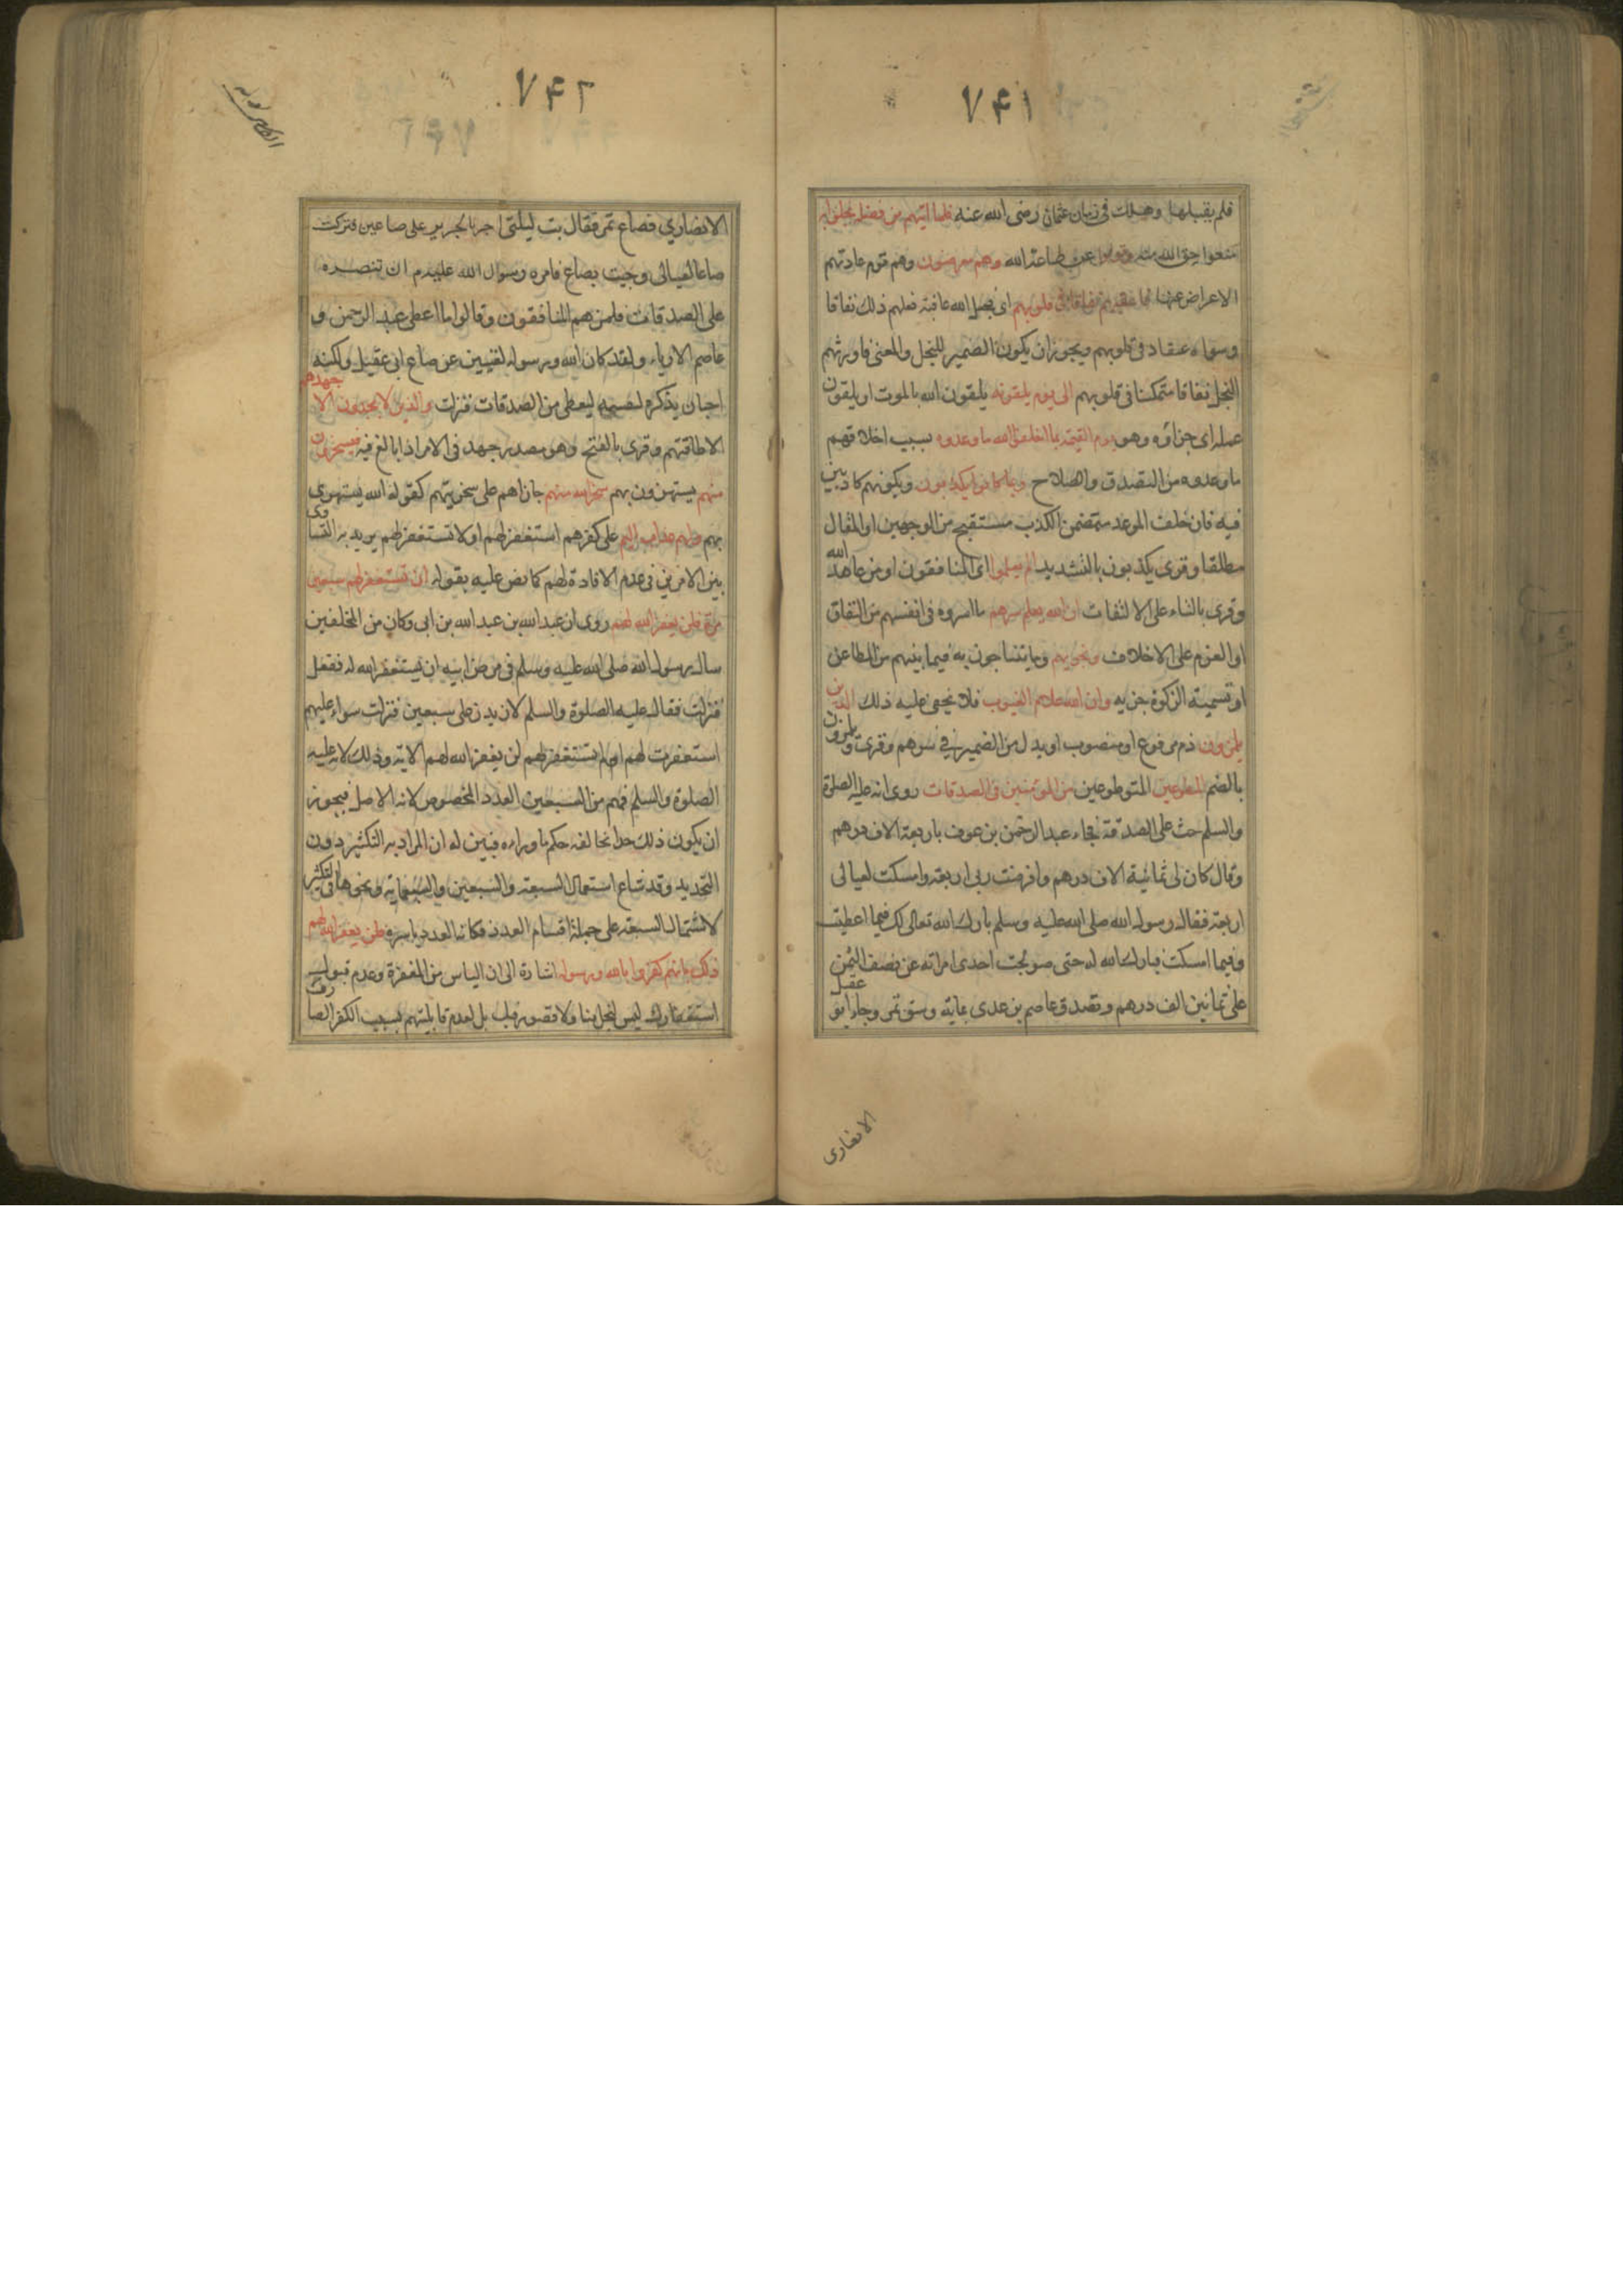 ۷۴۱
فلم يقبلها وهلك فى زمان عثمان رضى الله عنه فلما اتيهم من فضله بخلوا به
منعوا حق الله منه وتولوا عن طاعة الله وهم معرضون وهم قوم عادتهم
الاعراض عنها فاعقبهم نفاقا فى قلوبهم اى فجعل الله عاقبة فعلهم ذلك نفاقا
وسواء عتقاد فى قلوبهم ويجوز ان يكون الضمير للبخل والمعنى فاورثهم
البخل نفاقا متمكنا فى قلوبهم الى يوم يلقونه يلقون الله بالموت او يلقون
عمله اى جزاؤه وهو يوم القيمة بما اخلفوا الله ما وعدوه بسبب اخلافهم
ما وعدوه من التصدق والصلاح وبما كانوا يكذبون وبكونهم كاذبين
فيه فان خلف الموعد متضمن الكذب مستقبح من الوجهين او المقال
مطلقا وقرى يكذبون بالتشديد الم يعلموا اى المنافقون او من عاهد الله
وقرى بالتاء على الالتفات ان الله يعلم سرهم ما اسروه فى انفسهم من النفاق
او العزم على الاخلاف ونجويهم وما يتناجون به فيما بينهم من المطاعن
او تسمية الزكوة جزيه وان الله علام الغيوب فلا يخفى عليه ذلك الذين
يلمزون ذم مرفوع او منصوب او بدل من الضمير فى سرهم وقرى يلمزون
بالضم المطوعين المتطوعين من المؤمنين فى الصدقات روى انه عليه الصلوة
والسلم حث على الصدقة فجاء عبد الرحمن بن عوف باربعة الاف درهم
وقال كان لى ثمانية الاف درهم واقرضت ربى اربعة وامسكت لعيالى
اربعة فقال رسول الله صلى الله عليه وسلم بارك الله تعالى لك فيما اعطيت
وفيما امسكت فبارك الله له حتى صولحت احدى امراته عن نصف الثمن
على ثمانين الف درهم وتصدق عاصم بن عدى بماية وسق تمر وجاء ابو عقيل
الانصارى
۷۴۲
الانصاري فصاع تمر فقال بت ليلتى اجر بالجرير على صاعين فتركت
صاعا لعيالى وجيت بصاع فامره رسول الله عليه م ان تنصره
على الصدقات فلمزهم المنافقون وقالوا ما اعطى عبد الرحمن و
عاصم الا رياء ولقد كان الله ورسوله لغنيين عن صاع ابى عقيل ولكنه
احب ان يذكره لنفسه ليعطى من الصدقات فنزلت والذين لا يجدون الا جهدهم
الا طاقتهم وقرى بالفتح وهو مصدر جهد فى الامر اذا بالغ فيه فيسخرون
منهم يستهزون بهم سخر الله منهم جازاهم على سخريتهم كقوله الله يستهزى
بهم ولهم عذاب اليم على كفرهم استغفر لهم او لا تستغفر لهم يريد به التساوى
بين الامرين فى عدم الافادة لهم كما نص عليه بقوله ان تستغفر لهم سبعين
مرة فلن يغفر الله لهم روى ان عبد الله بن عبد الله بن ابى وكان من المخلفين
سال رسول الله صلى الله عليه وسلم فى مرض ابيه ان يستغفر الله له ففعل
فنزلت فقال عليه الصلوة والسلم لازيدن على سبعين فنزلت سواء عليهم
استغفرت لهم ام لم تستغفر لهم لن يغفر الله لهم الاية وذلك لانه عليه
الصلوة والسلم فهم من السبعين العدد المخصوص لانه الاصل فيجوز
ان يكون ذلك حدا يخالفه حكم ما وراءه فبين له ان المراد به التكثير دون
التحديد وقد شاع استعمال السبعة والسبعين والسبعماية ونحوها فى التكثير
لاشتمال السبعة على جملة اقسام العدد فكانه العدد باسره فلن يغفر الله لهم
ذلك بانهم كفروا بالله ورسوله اشارة الى ان الياس من المغفرة وعدم قبول
استغفارك ليس لبخل منا ولا قصور فيك بل لعدم قابليتهم بسبب الكفر الصارف